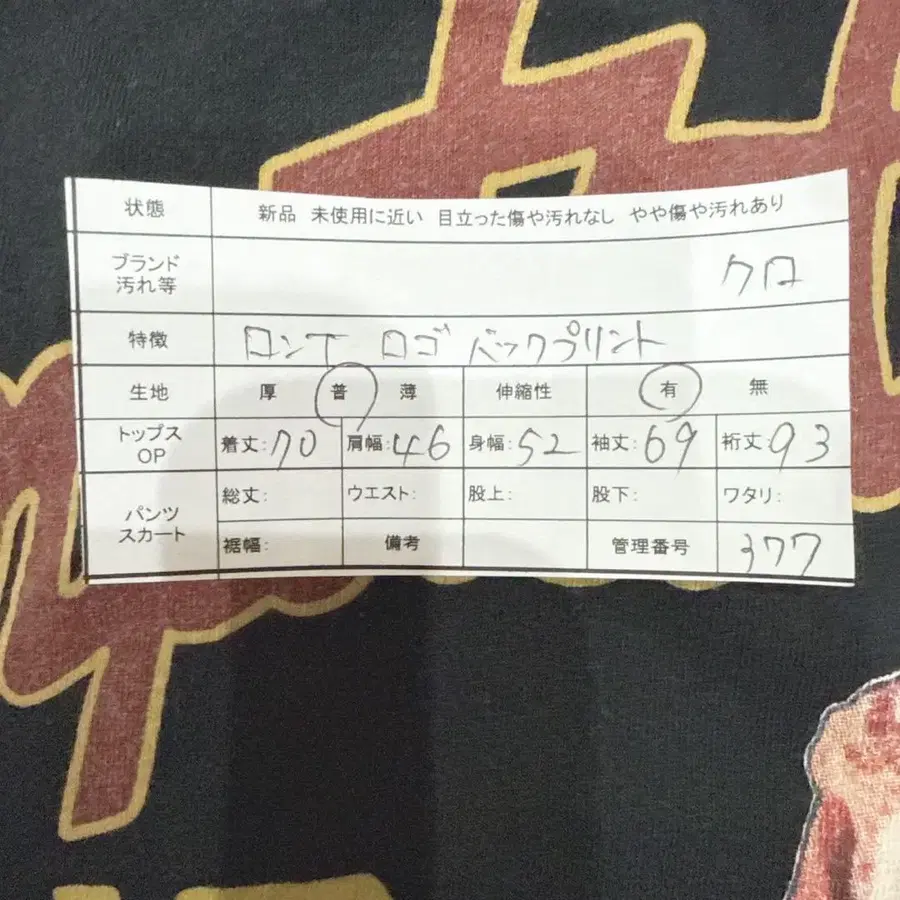 状態 新品 未使用に近い 目立った傷や汚れなし やや傷や汚れあり
ブランド
汚れ等 クロ
特徴 ロンT ロゴ バックプリント
生地 厚 普 薄 伸縮性 有 無
トップス
OP 着丈:70 肩幅:46 身幅:52 袖丈:69 裄丈:93
パンツ
スカート 総丈: ウエスト: 股上: 股下: ワタリ:
裾幅: 備考 管理番号 377